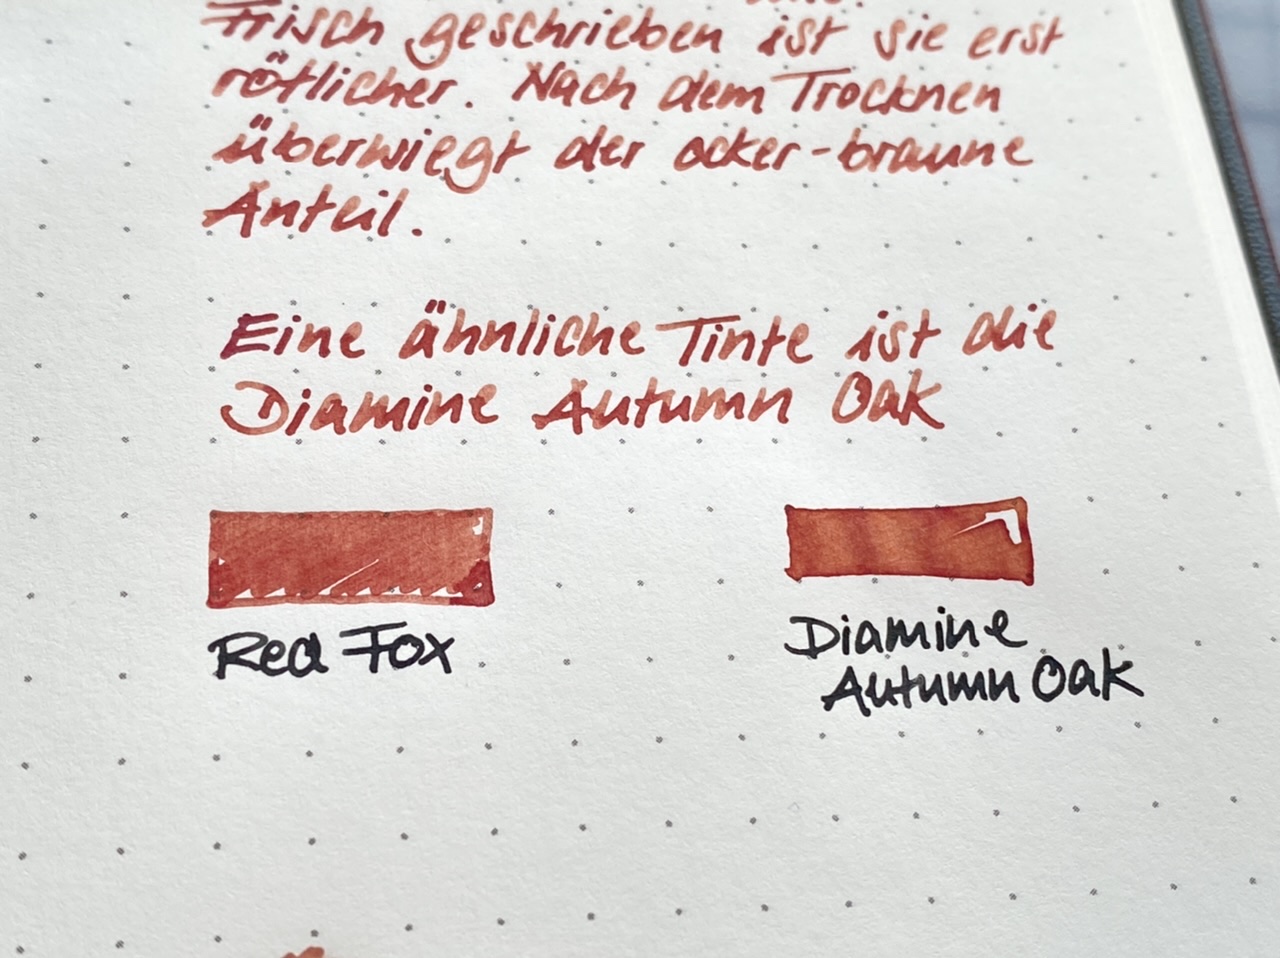 Frisch geschrieben ist sie erst
rötlicher. Nach dem Trocknen
überwiegt der ocker-braune
Anteil.
Eine ähnliche Tinte ist die
Diamine Autumn Oak
Red Fox
Diamine
Autumn Oak